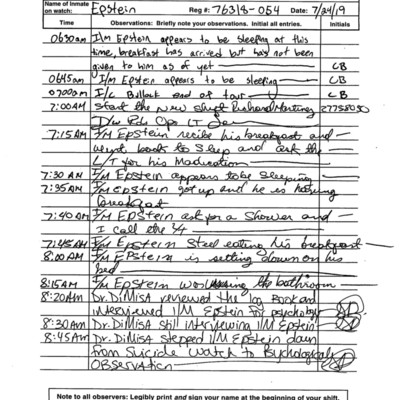 Name of Inmate on watch: Epstein Reg #: 76318-054 Date: 7/24/19
Time Observations: Briefly note your observations. Initial all entries. Initials
0630am I/m Epstein appears to be sleeping at this
time, breakfast has arrived but has not been
given to him as of yet CB
0645am I/m Epstein appears to be sleeping CB
0700am I/C Bullock end of tour CB
7:00AM Start the new shift Richard
Ops LT
7:15AM I/M Epstein recibe his breakfast and
went back to sleep and ask the
L/T for his Madication
7:30 AM I/M Epstein appears to be sleeping
7:35AM I/M epstein got up and he is
breakfast
7:40AM I/M EPStein ask for a Shower and
I call the
7:45AM I/m Epstein Steel eating his breakfast
8:00AM I/m EPstein is setting down on his
bed
8:15AM I/m EPstein was the bathroom
8:20AM Dr. DiMisA reviewed the log Book and
interviewed I/M Epstein for psychology
8:30AM Dr. DiMisA still interviewing I/M Epstein
8:45AM Dr. DiMisA stepped I/M Epstein down
from Suicide Watch to Psychological
OBSERVATION
Note to all observers: Legibly print and sign your name at the beginning of your shift.